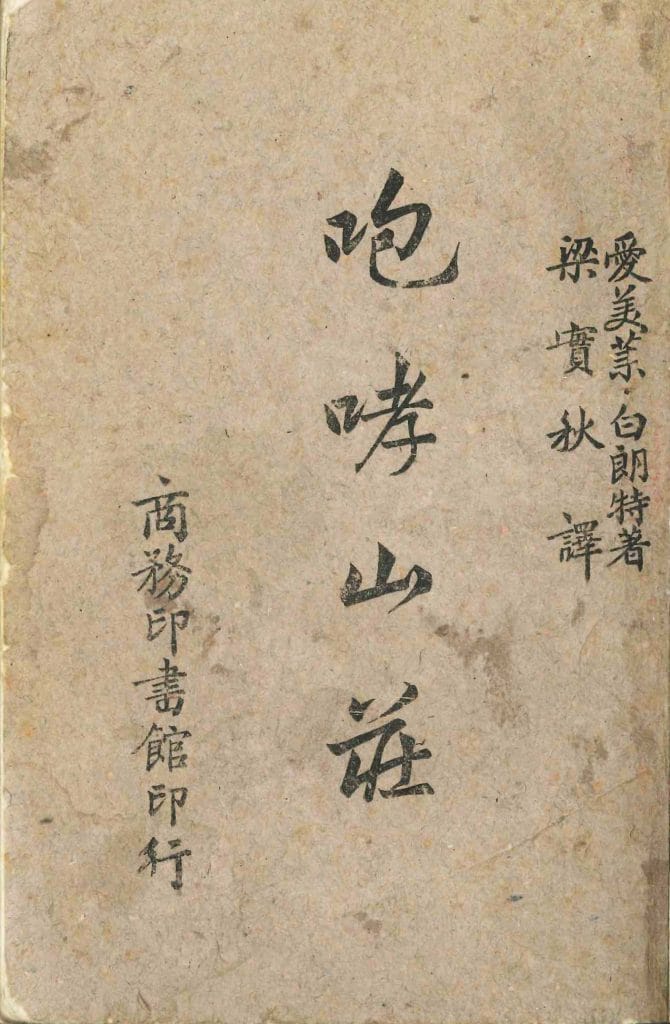 愛美萊·白朗特著
梁實秋譯
咆哮山莊
商務印書館印行